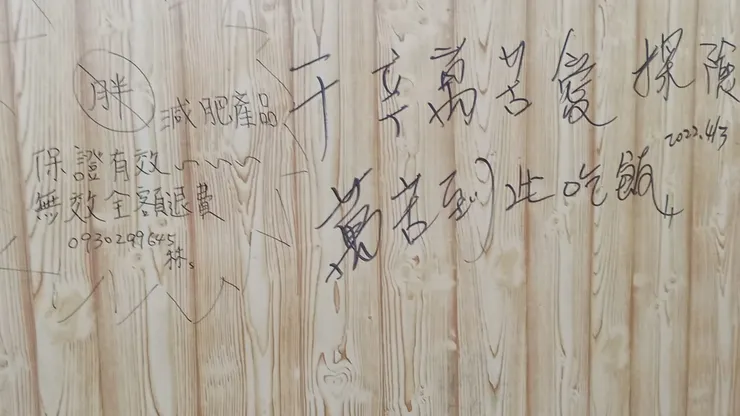 胖
減肥產品
保證有效~~~
無效全額退費
0930299645
林。
千辛萬苦愛探險
2022.4/3
萬苦到此吃飯